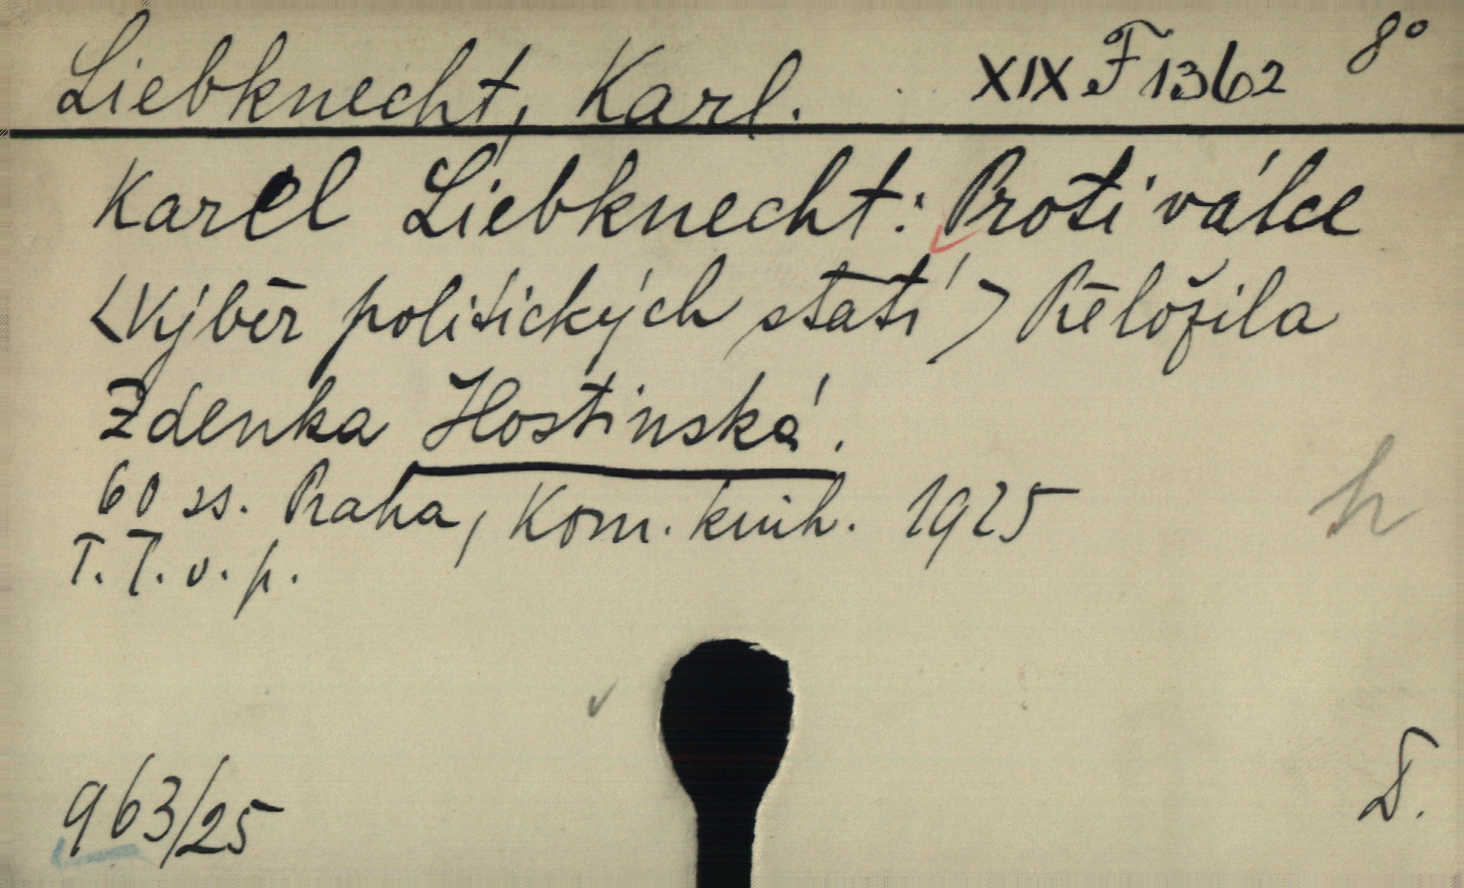 Liebknecht, Karl. XIX F 1362 8°
Karel Liebknecht: Proti válce
<Výběr politických statí> Přeložila
Zdenka Hostinská.
60 ss. Praha, Kom. knih. 1925
T. T. v. p.
h
963/25